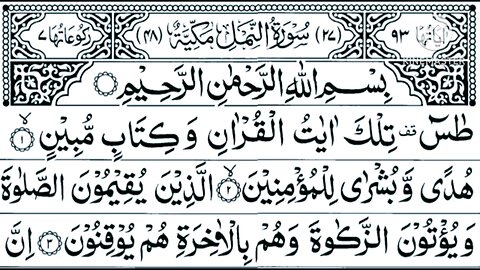 اٰيَاتُهَا ٩٣ (٢٧) سُوْرَةُ النَّمْلِ مَكِّيَّةٌ (٤٨) رُكُوْعَاتُهَا ٧
بِسْمِ اللهِ الرَّحْمٰنِ الرَّحِيْمِ
طٰسٓ قف تِلْكَ اٰيٰتُ الْقُرْاٰنِ وَكِتَابٍ مُّبِيْنٍ ۙ١
هُدًى وَّبُشْرٰى لِلْمُؤْمِنِيْنَ ۙ٢ الَّذِيْنَ يُقِيْمُوْنَ الصَّلٰوةَ
وَيُؤْتُوْنَ الزَّكٰوةَ وَهُمْ بِالْاٰخِرَةِ هُمْ يُوْقِنُوْنَ ٣ اِنَّ